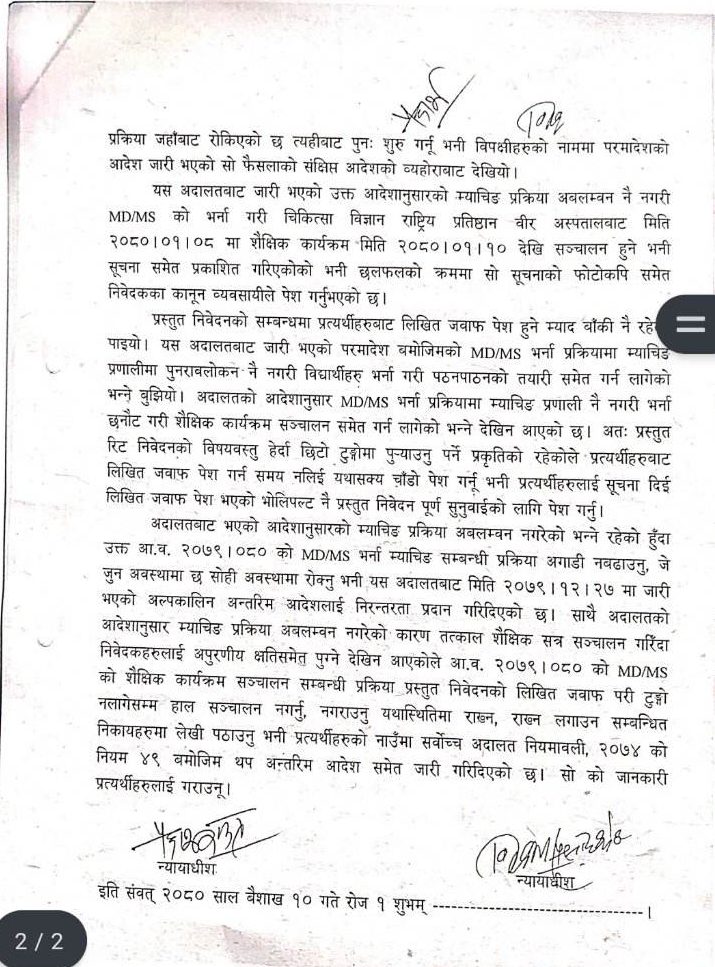 प्रक्रिया जहाँबाट रोकिएको छ त्यहीबाट पुनः शुरु गर्नू भनी विपक्षीहरुको नाममा परमादेशको
आदेश जारी भएको सो फैसलाको संक्षिप्त आदेशको व्यहोराबाट देखियो।
यस अदालतबाट जारी भएको उक्त आदेशानुसारको म्याचिङ प्रक्रिया अबलम्वन नै नगरी
MD/MS को भर्ना गरी चिकित्सा विज्ञान राष्ट्रिय प्रतिष्ठान वीर अस्पतालबाट मिति
२०८०।०१।०८ मा शैक्षिक कार्यक्रम मिति २०८०।०१।१० देखि सञ्चालन हुने भनी
सूचना समेत प्रकाशित गरिएकोको भनी छलफलको क्रममा सो सूचनाको फोटोकपि समेत
निवेदकका कानून व्यवसायीले पेश गर्नुभएको छ।
प्रस्तुत निवेदनको सम्बन्धमा प्रत्यर्थीहरुबाट लिखित जवाफ पेश हुने म्याद बाँकी नै
पाइयो। यस अदालतबाट जारी भएको परमादेश बमोजिमको MD/MS भर्ना प्रक्रियामा म्याचिङ
प्रणालीमा पुनरावलोकन नै नगरी विद्यार्थीहरु भर्ना गरी पठनपाठनको तयारी समेत गर्न लागेको
भन्ने बुझियो। अदालतको आदेशानुसार MD/MS भर्ना प्रक्रियामा म्याचिङ प्रणाली नै नगरी भर्ना
छनौट गरी शैक्षिक कार्यक्रम सञ्चालन समेत गर्न लागेको भन्ने देखिन आएको छ। अतः प्रस्तुत
रिट निवेदनको विषयवस्तु हेर्दा छिटो टुङ्गोमा पुऱ्याउनु पर्ने प्रकृतिको रहेकोले प्रत्यर्थीहरुवाट
लिखित जवाफ पेश गर्न समय नलिई यथासक्य चाँडो पेश गर्नू भनी प्रत्यर्थीहरुलाई सूचना दिई
लिखित जवाफ पेश भएको भोलिपल्ट नै प्रस्तुत निवेदन पूर्ण सुनुवाईको लागि पेश गर्नु।
अदालतबाट भएको आदेशानुसारको म्याचिङ प्रक्रिया अबलम्वन नगरेको भन्ने रहेको हुँदा
उक्त आ.व. २०७९।०८० को MD/MS भर्ना म्याचिङ सम्बन्धी प्रक्रिया अगाडी नबढाउनु, जे
जुन अवस्थामा छ सोही अवस्थामा रोक्नु भनी यस अदालतबाट मिति २०७९।१२।२७ मा जारी
भएको अल्पकालिन अन्तरिम आदेशलाई निरन्तरता प्रदान गरिदिएको छ। साथै अदालतको
आदेशानुसार म्याचिङ प्रक्रिया अबलम्वन नगरेको कारण तत्काल शैक्षिक सत्र सञ्चालन गरिँदा
निवेदकहरुलाई अपुरणीय क्षतिसमेत पुग्ने देखिन आएकोले आ.व. २०७९।०८० को MD/MS
को शैक्षिक कार्यक्रम सञ्चालन सम्बन्धी प्रक्रिया प्रस्तुत निवेदनको लिखित जवाफ परी टुङ्गो
नलागेसम्म हाल सञ्चालन नगर्नु, नगराउनु यथास्थितिमा राख्न, राख्न लगाउन सम्बन्धित
निकायहरुमा लेखी पठाउनु भनी प्रत्यर्थीहरुको नाउँमा सर्वोच्च अदालत नियमावली, २०७४ को
नियम ४९ बमोजिम थप अन्तरिम आदेश समेत जारी गरिदिएको छ। सो को जानकारी
प्रत्यर्थीहरुलाई गराउनू।
न्यायाधीश
न्यायाधीश
इति संवत् २०८० साल बैशाख १० गते रोज १ शुभम् ------------------------------।
2 / 2